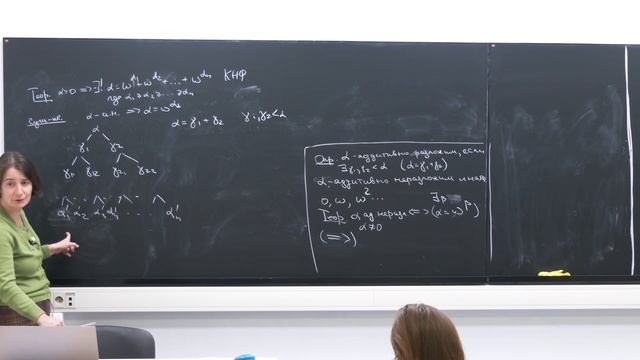 Теор. α>0 => ∃! α=ω^α₁+ω^α₂+...+ω^αₙ КНФ
где α₁⩾α₂⩾...⩾αₙ
Сущ-ие. α-а.н. => α=ω^α₁
α = γ₁+γ₂ γ₁,γ₂<α
α
γ₁ γ₂
γ₁₁ γ₁₂ γ₂₁ γ₂₂
αₙ'
Опр. α-аддитивно разложим, если
∃γ₁,γ₂<α (α=γ₁+γ₂)
α-аддитивно неразложим иначе
0, ω, ω²...
∃β
Теор. α ад неразл <=> (α=ω^β)
α≠0
(=>)